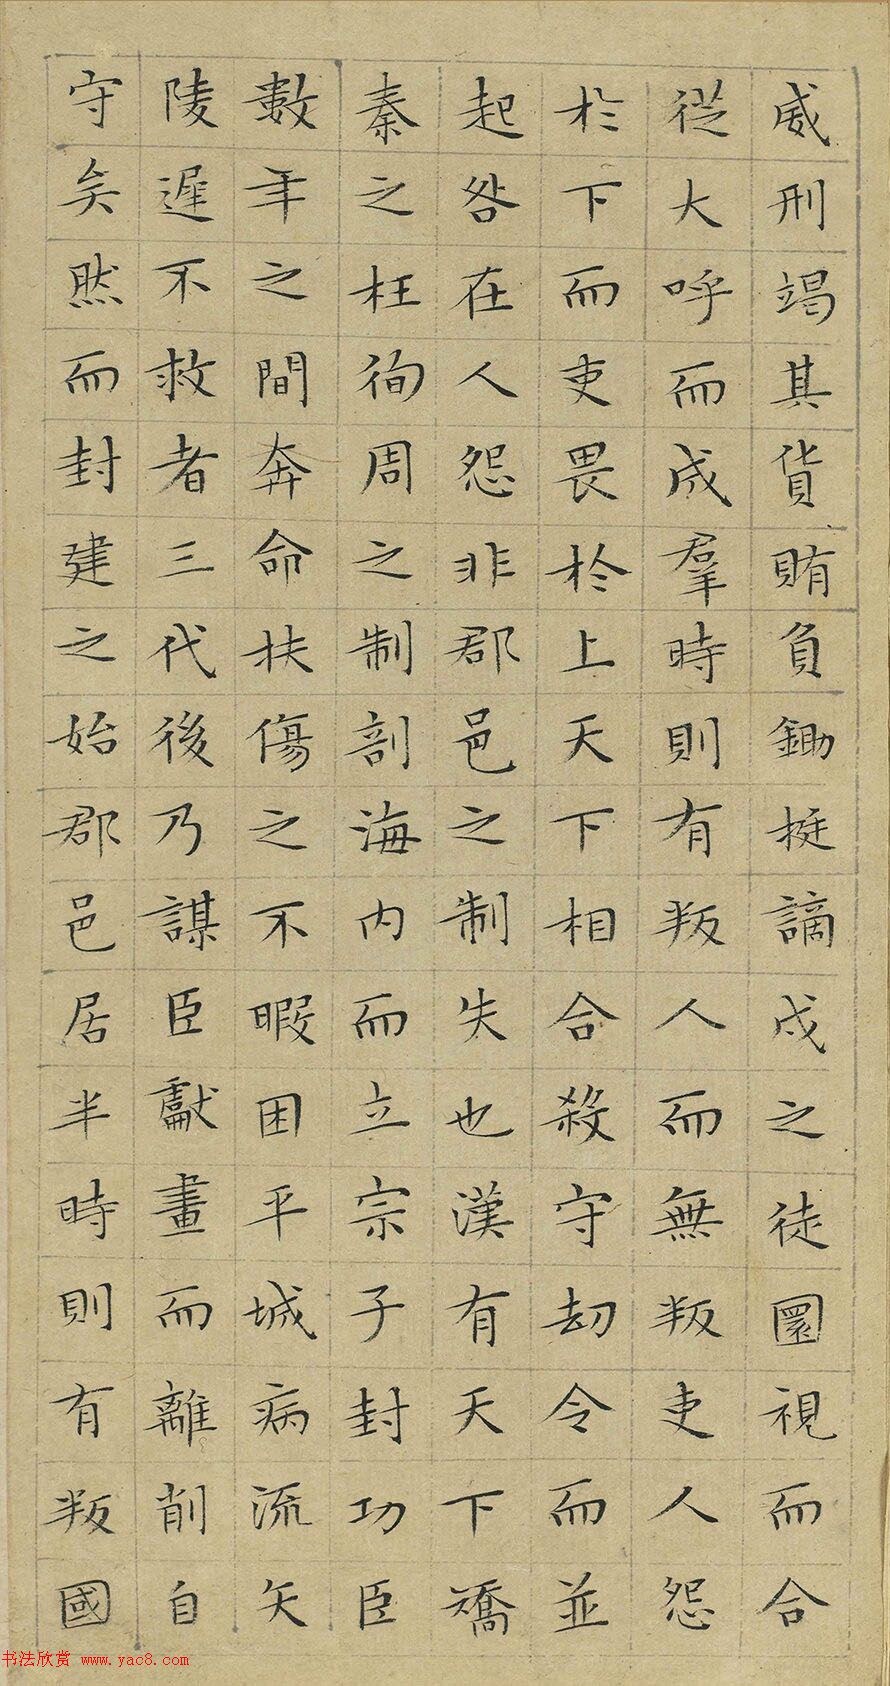 威刑竭其貨賄負鋤梃謫戍之徒圜視而合
從大呼而成羣時則有叛人而無叛吏人怨
於下而吏畏於上天下相合殺守劫令而並
起咎在人怨非郡邑之制失也漢有天下矯
秦之枉徇周之制剖海內而立宗子封功臣
數年之間奔命扶傷之不暇困平城病流矢
陵遲不救者三代後乃謀臣獻畫而離削自
守矣然而封建之始郡邑居半時則有叛國
书法欣赏 www.yac8.com